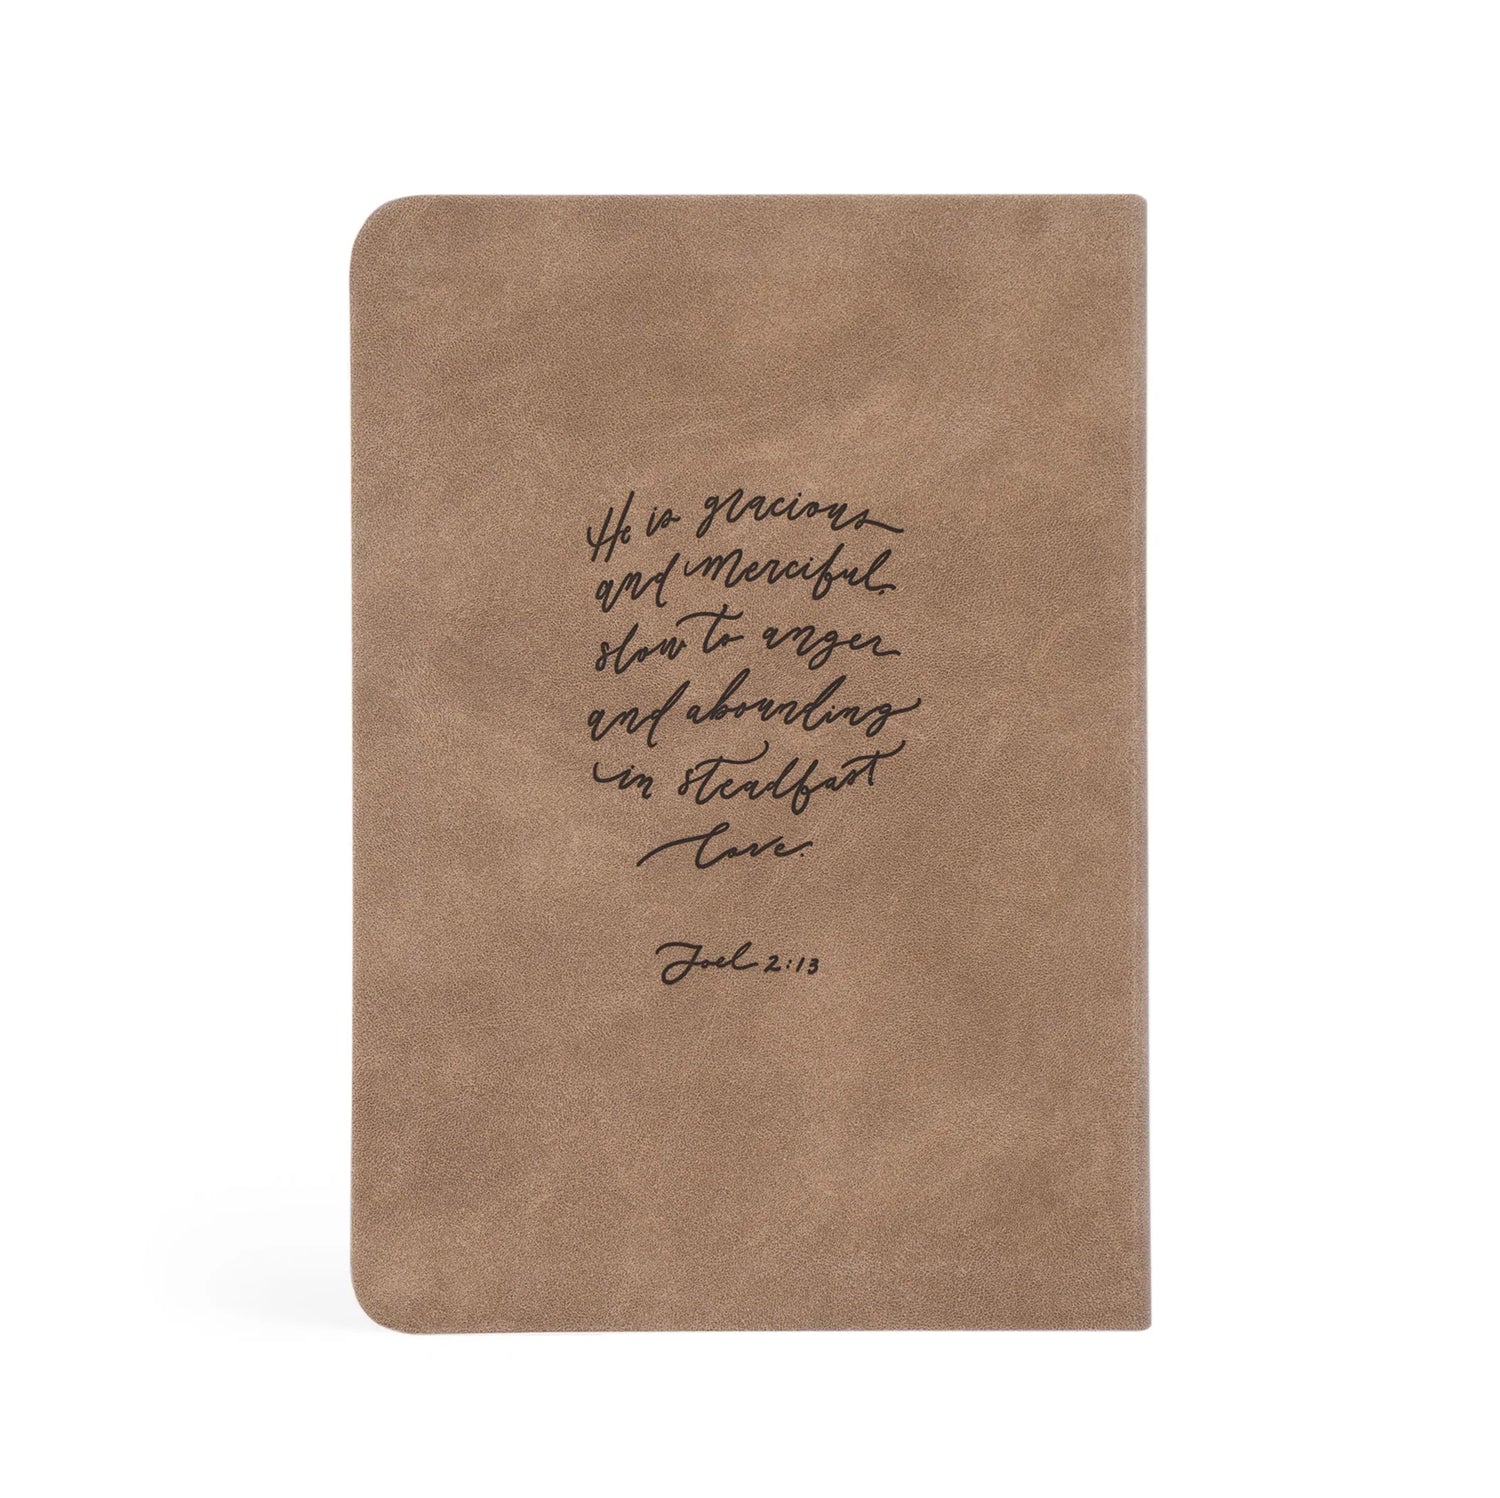 He is gracious
and merciful,
slow to anger
and abounding
in steadfast
love.
Joel 2:13